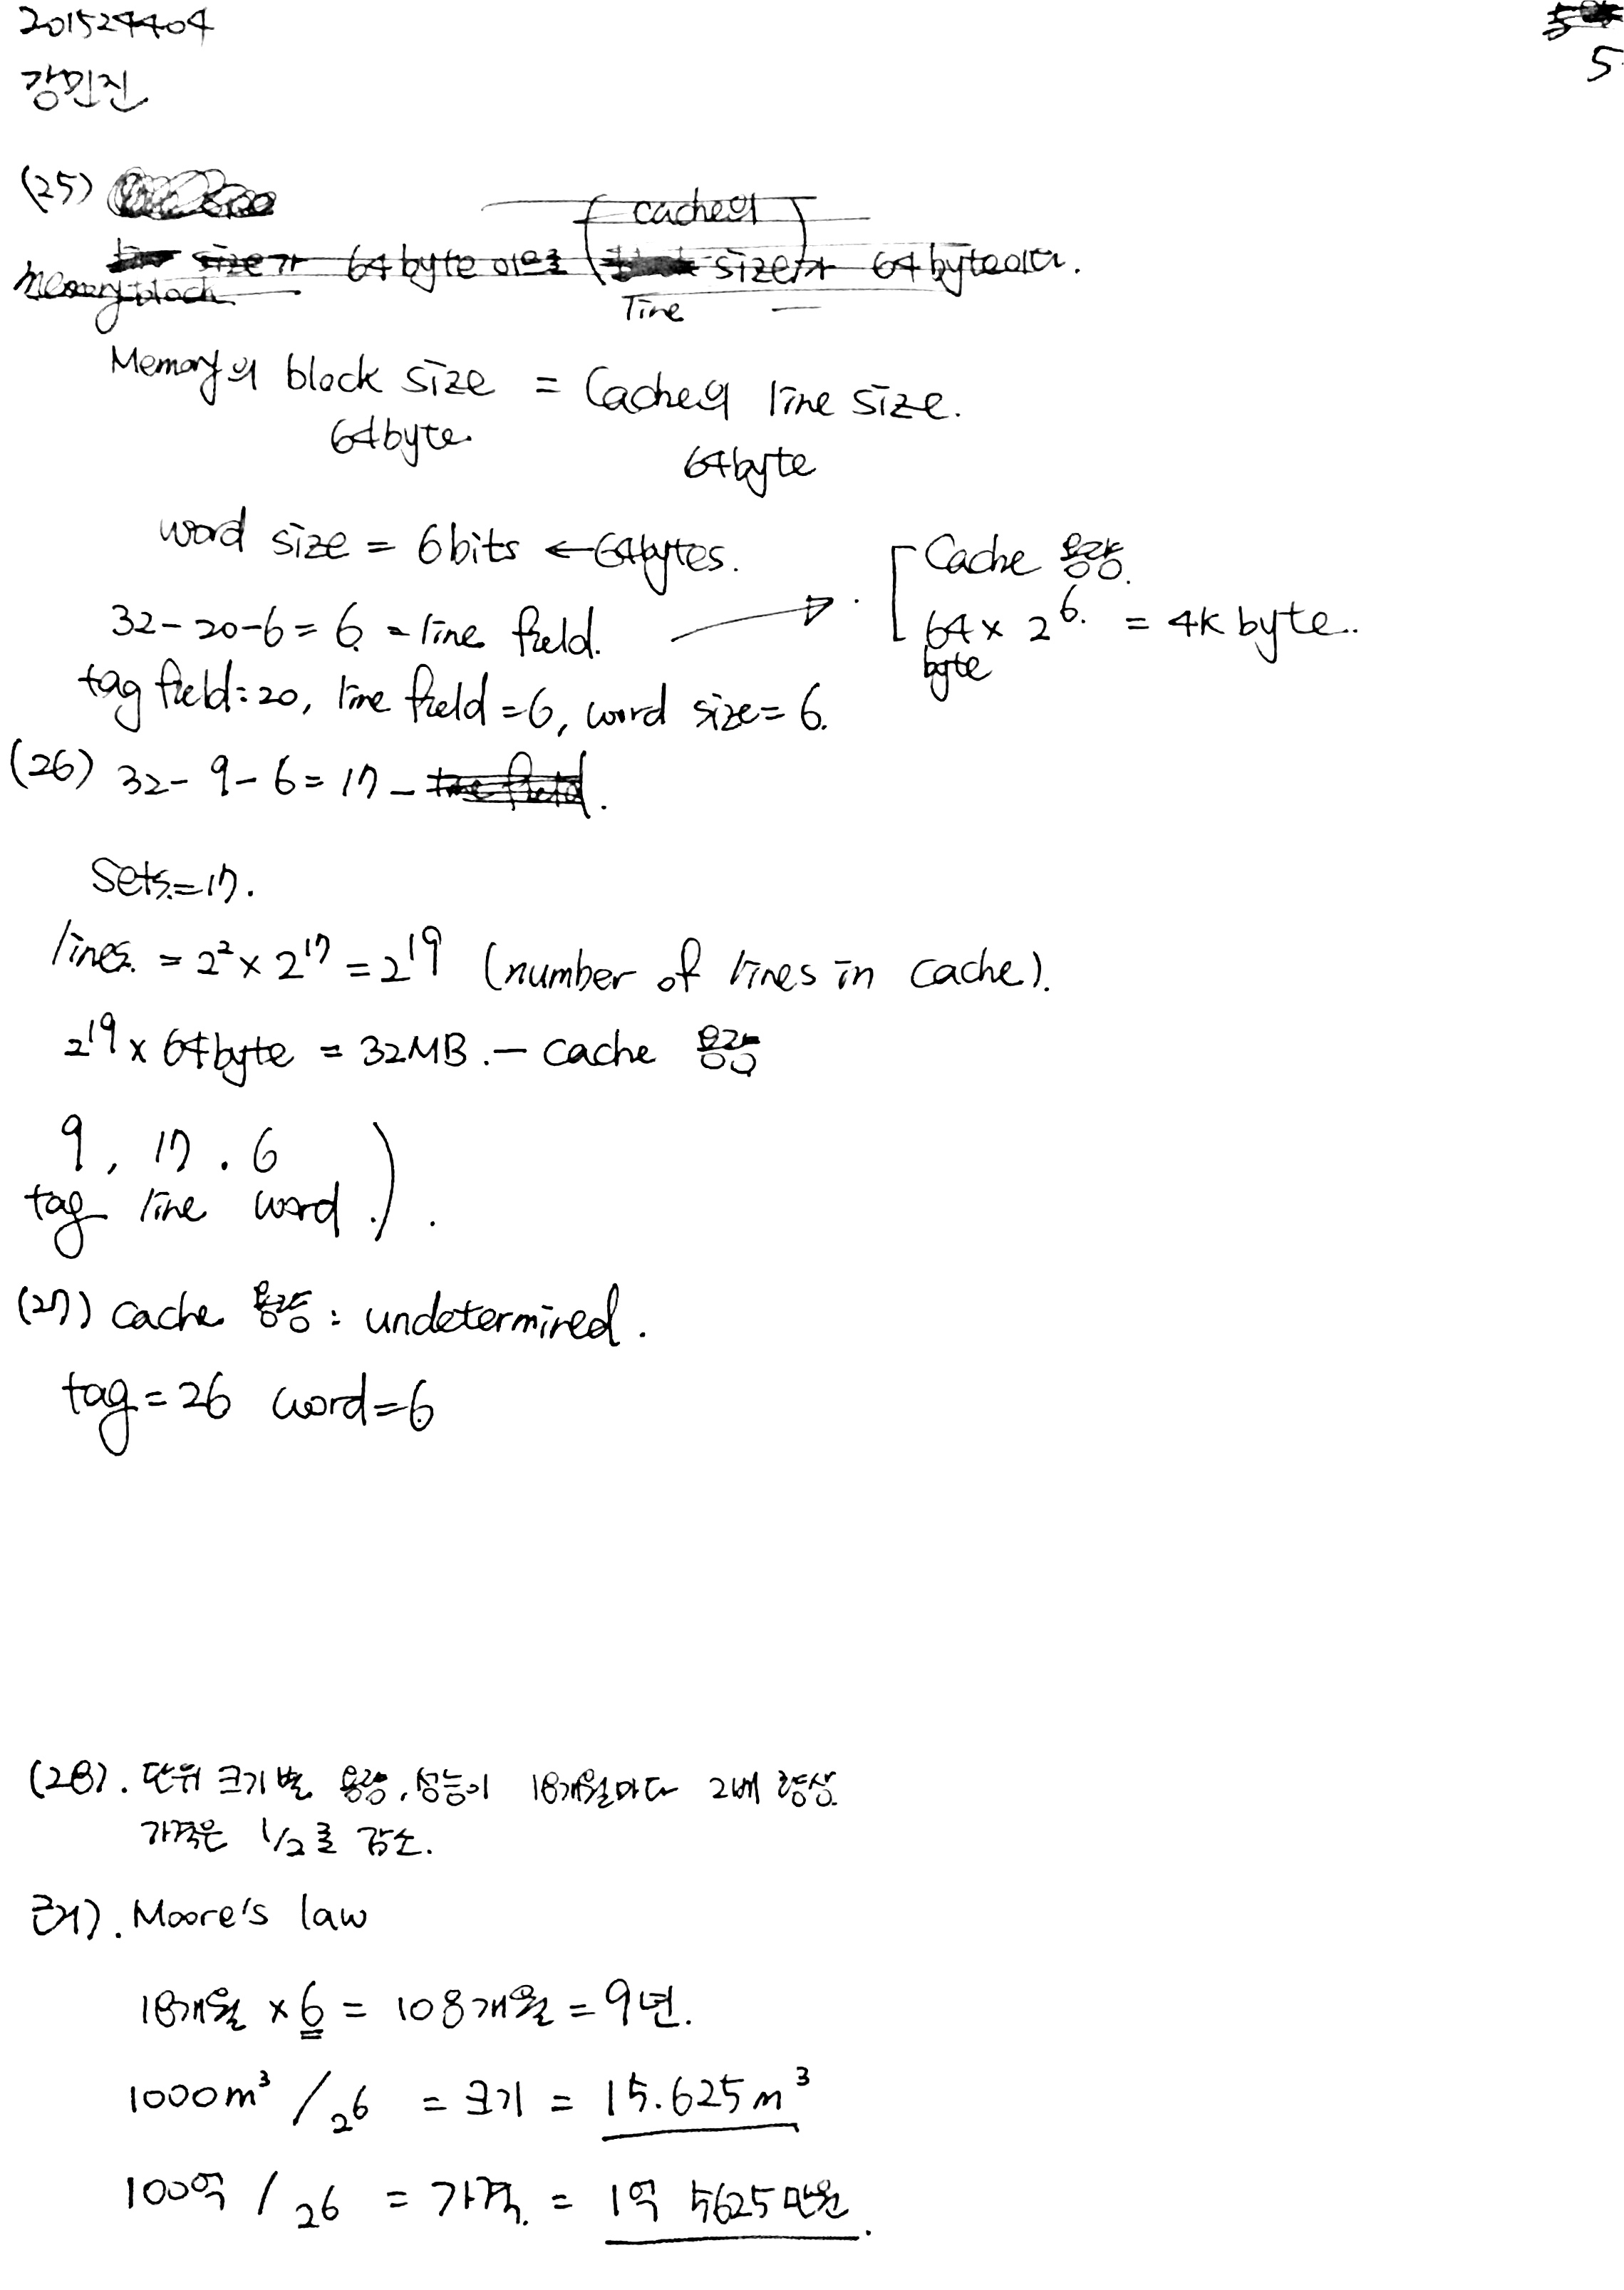 201524404
강민진
5
(25)
cache의
size가 64 byte 이므로 size가 64 byte이다.
Memory block
line
Memory의 block size = Cache의 line size.
64byte.
64byte
word size = 6bits ← 64bytes.
Cache 용량.
32-20-6 = 6 = line field.
64 × 2^6 = 4K byte.
byte
tag field = 20, line field = 6, word size = 6.
(26) 32 - 9 - 6 = 17 -
Sets = 17.
lines = 2² × 2^17 = 2^19 (number of lines in cache).
2^19 × 64byte = 32MB. - cache 용량
9, 17, 6
tag line word
(27) cache 용량 : undetermined.
tag = 26 word = 6
(28). 단위 크기별 용량, 성능이 18개월마다 2배 향상
가격은 1/2로 감소.
근거). Moore's law
18개월 × 6 = 108개월 = 9년.
1000m³ / 2^6 = 크기 = 15.625m³
100억 / 2^6 = 가격 = 1억 5625만원.